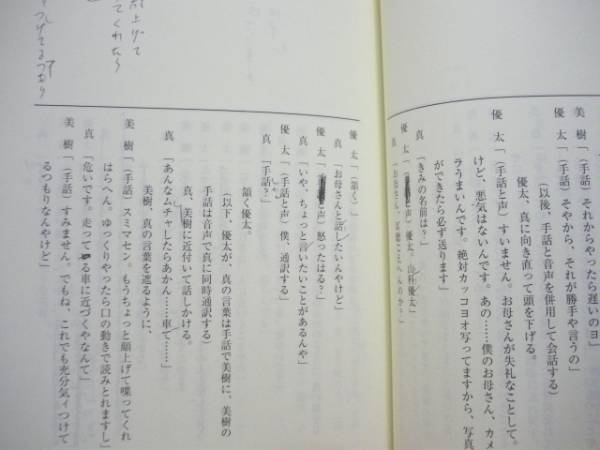 美樹「（手話）それからやったら遅いのヨ」
真「（手話）そやから、それが勝手や言うの」
（以後、手話と音声を併用して会話する）
優太、真に向き直って頭を下げる。
優太「（手話と声）すいません。お母さんが失礼なことして。
けど、悪気はないんです。あの……僕のお母さん、カメ
ラうまいんです。絶対カッコヨオ写ってますから、写真
ができたら必ず送ります」
真「きみの名前は？」
優太「（声）優太。山科優太」
真「お母さん、耳聴こえへんのか？」
優太「（頷く）」
真「お母さんと話したいんやけど」
優太「（声）怒ったはる？」
真「いや、ちょっと言いたいことがあるんや」
優太「（手話と声）僕、通訳する」
真「手話？」
頷く優太。
（以下、優太が、真の言葉は手話で美樹に、美樹の
手話は音声で真に同時通訳する）
真、美樹に近付いて話しかける。
真「あんなムチャしたらあかん……車で……」
美樹、真の言葉を遮るように、
美樹「（手話）スミマセン。もうちょっと顔上げて喋ってくれ
はらへん。ゆっくりやったら口の動きで読みとれますし」
真「危いです。走ってる車に近づくやなんて」
美樹「（手話）すみません。でもね、これでも充分気ィつけて
るつもりなんやけど」
顔上げて
てくれたら
つけてるつもり